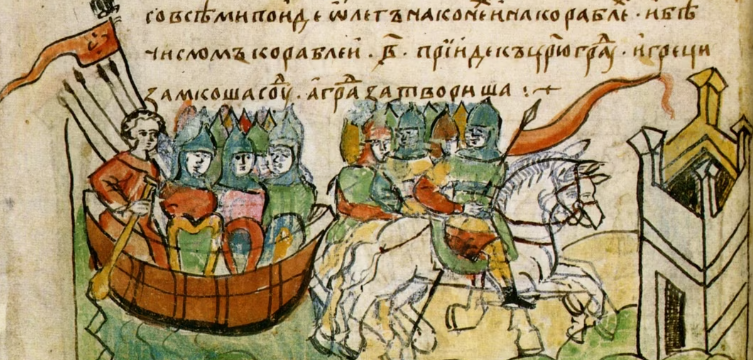 совсѣмипоиде ѡлегънаконеⷯинакораблеⷯ · ибѣ
числомъкораблеи · в҃ · прїидекъцрⷭ҇юграⷣ · игреци
замкошасоуⷣ · аграⷣзатвориша :·